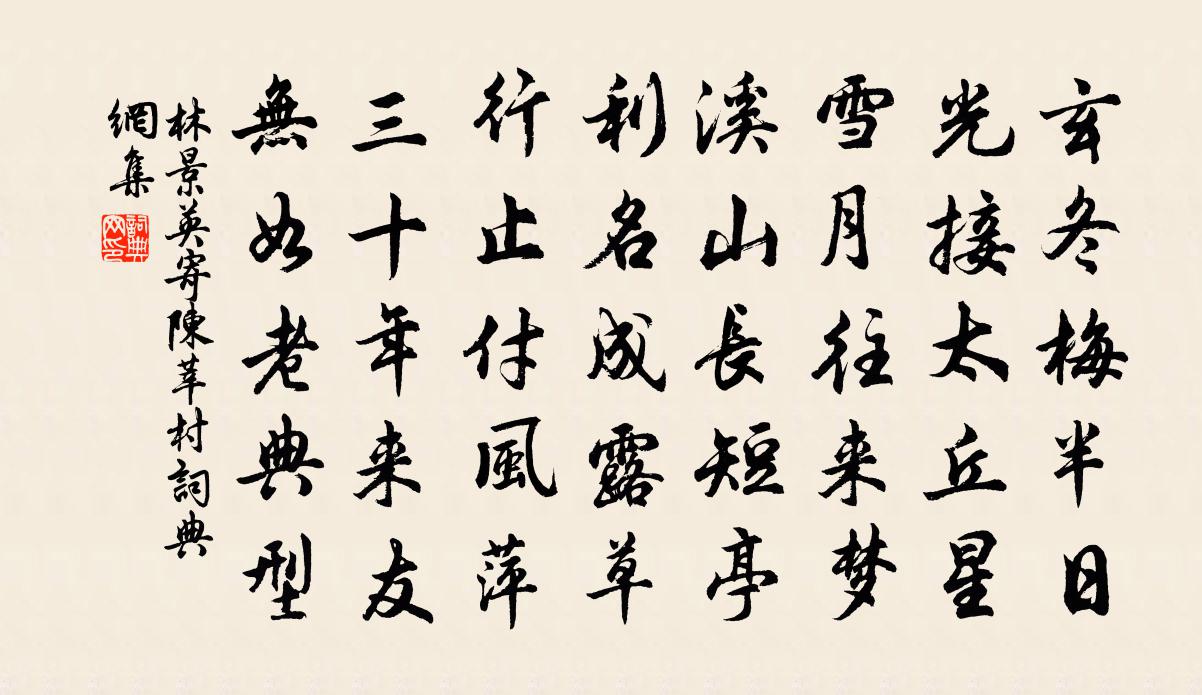 玄冬梅半日
光接太丘星
雪月往来梦
溪山長短亭
利名成露草
行止付風萍
三十年来友
無如老典型
林景英寄陳莘村詞典
網集
詞典
网印